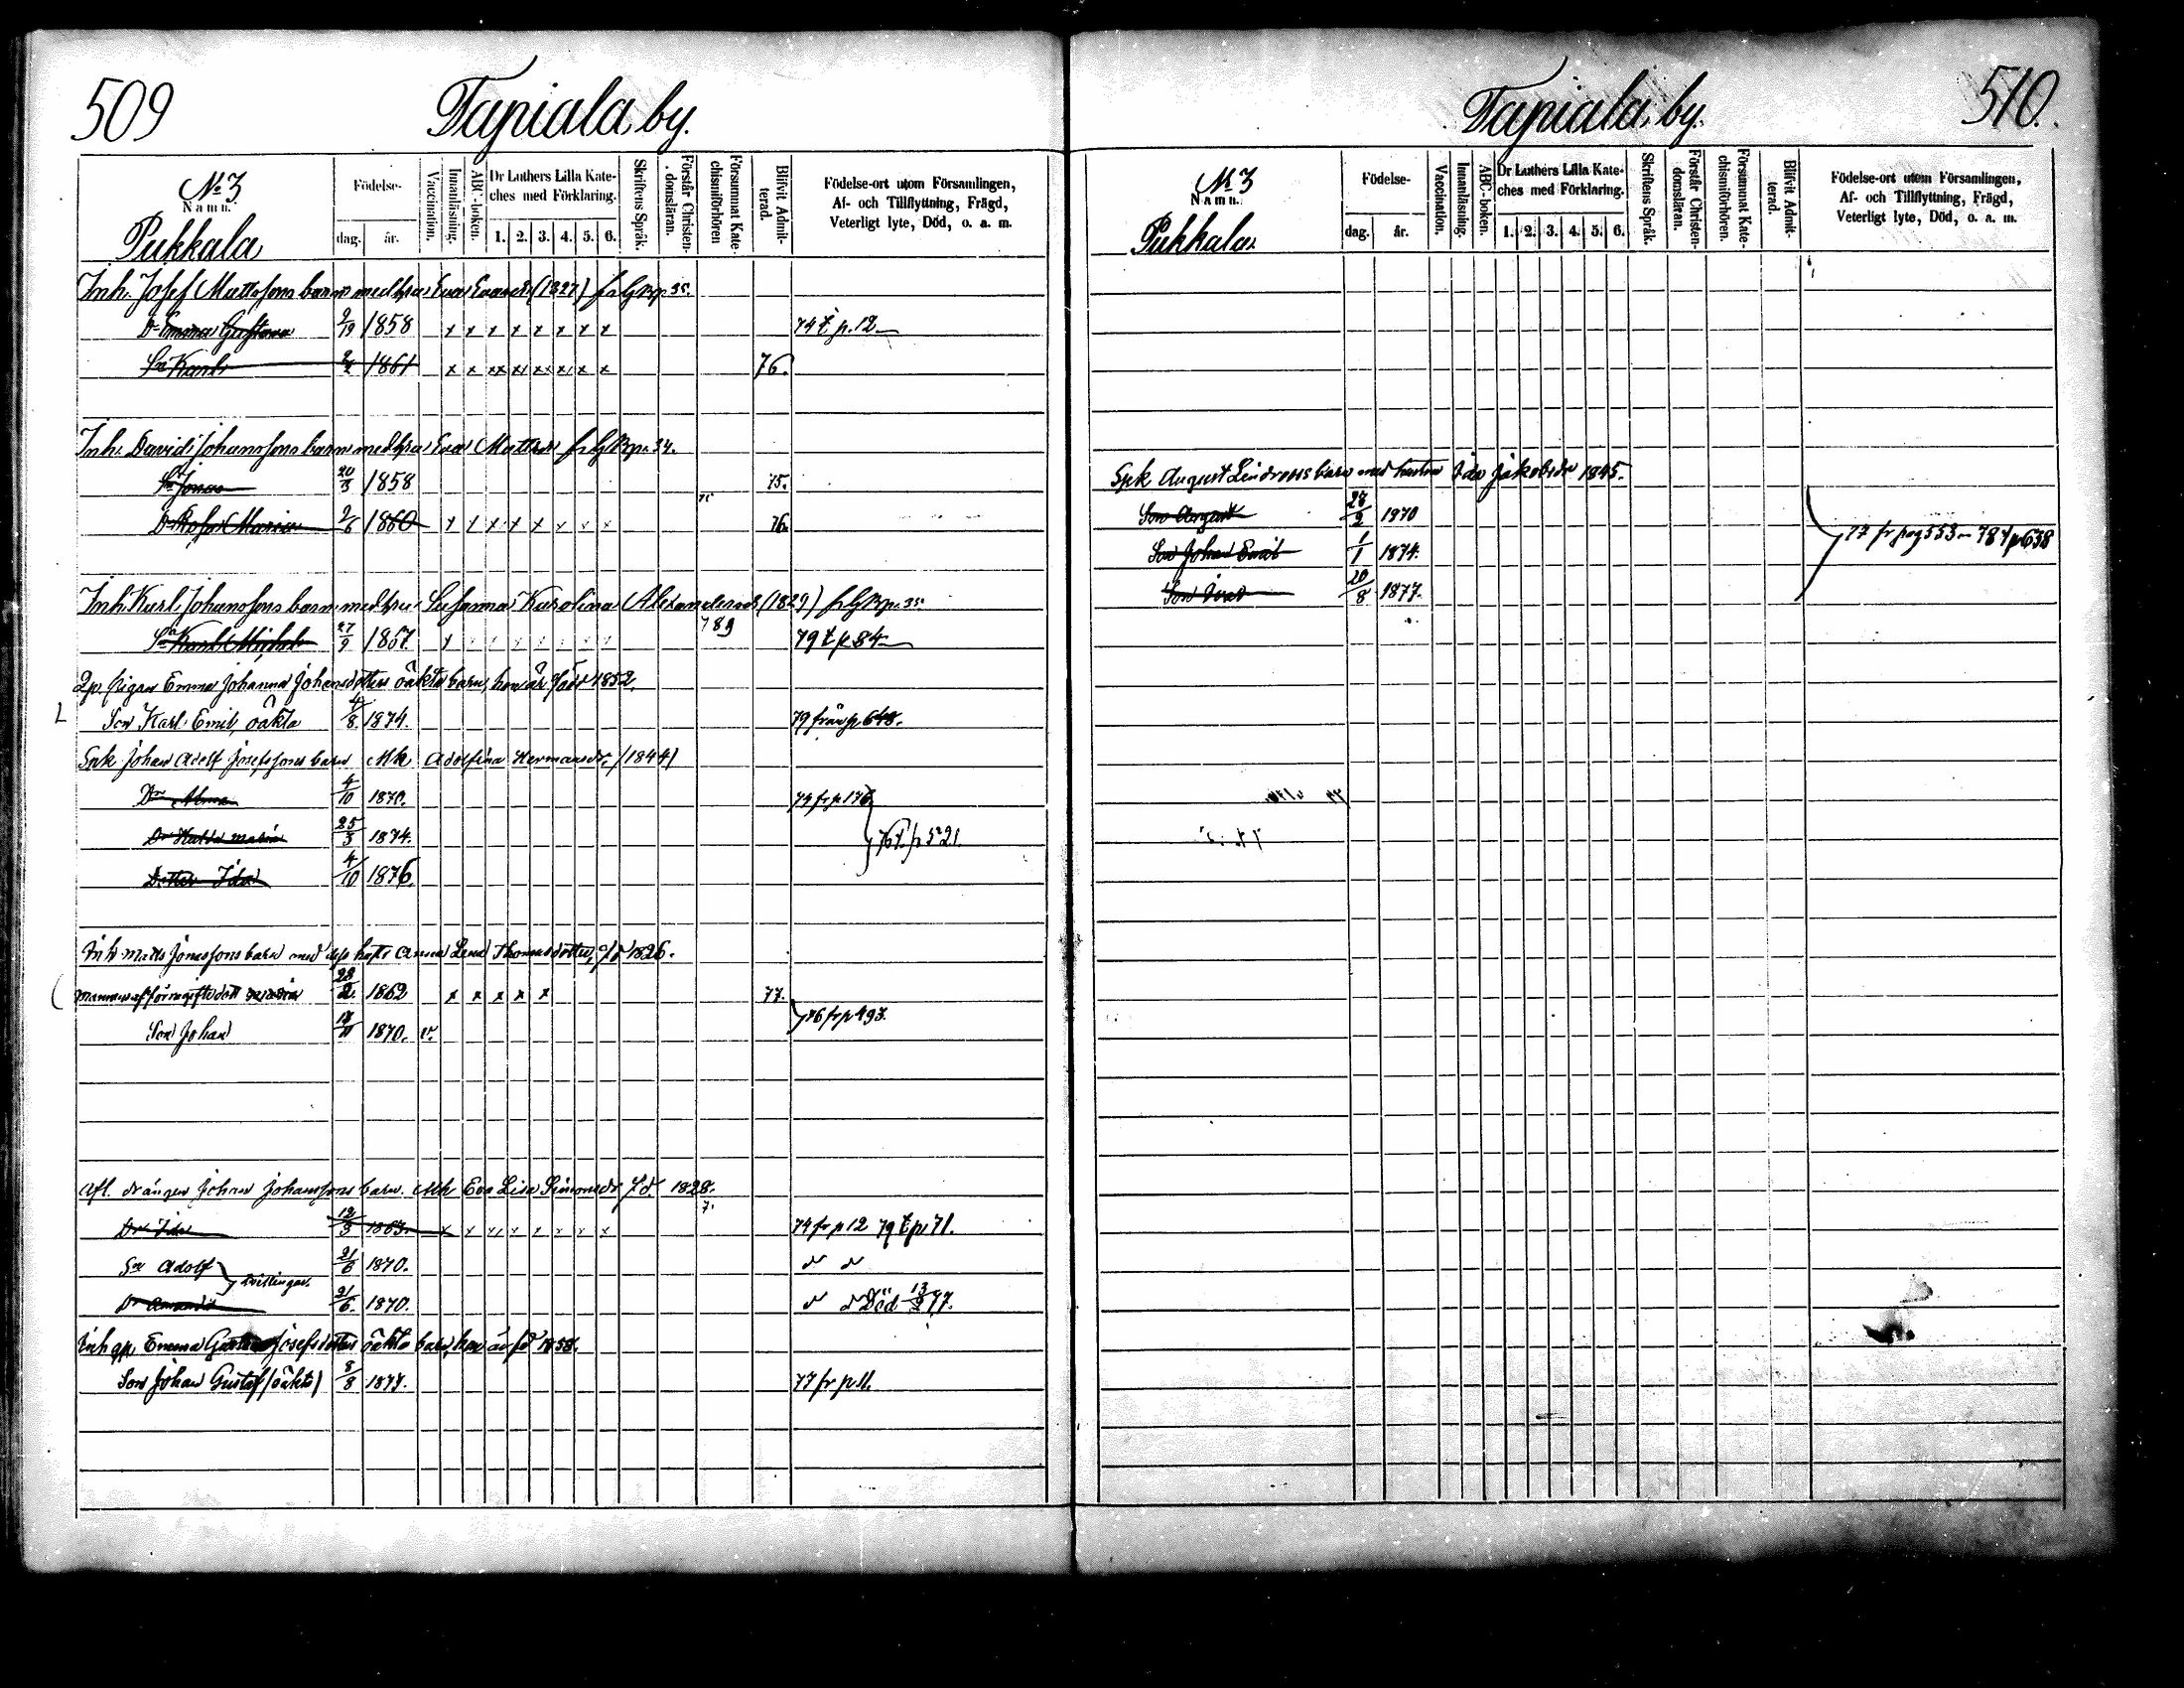 509
Tapiala by.
No 3
Namn.
Pukkala
Födelse-
dag. år.
Vaccination.
Innanläsning.
ABC-boken.
Dr Luthers Lilla Kate-
ches med Förklaring.
1. 2. 3. 4. 5. 6.
Skriftens Språk.
Förstår Christen-
domsläran.
Försummat Kate-
chismiförhören
Blifvit Admit-
terad.
Födelse-ort utom Församlingen,
Af- och Tillflyttning, Frägd,
Veterligt lyte, Död, o. a. m.
Inh. Josef Mattssons barn med hu Eva (1827)
Dr Emma Gustava 2/19 1858 x x x x x x x x 74 t p. 12
Sn Karl 1861 x x xx x x x x x 76.
Inh. David Johanssons barn med hu Eva Mattsdr
Sn Jonas 20/3 1858 75.
Dr Rosa Maria 2/6 1860 x x x x x x x x 76.
Inh. Karl Johanssons barn med hu Susanna Karolina Alexandersdr (1829)
789
Sn Karl Michel 27/9 1867. 79 t p 84
pigan Emma Johanna Johansdotters oäkta barn, hon är född 1852.
Son Karl Emil, oäkta 4/8 1874. 79 från p. 648.
Spk Johan Adolf Josefssons barn Mh Adolfina Hermansdr (1844)
Dr Alma 4/10 1870. 74 fr p 176
Dr Hulda Maria 25/3 1874. 76 t. p 521.
Dotter Ida 4/10 1876.
Inh Matts Jonassons barn med dess hustr Anna Lena Thomasdotter, fd 1826.
28/2 1862 x x x x x 77.
76 fr p 497.
Son Johan 1870. v.
Afl. drängen Johan Johanssons barn. Mh Eva Lisa Simonsdr fd. 1828.
7.
Dr Ida 12/3 1863. x x x x x x x x 74 fr p 12 79 t p 71.
Sn Adolf 21/6 1870.
tvillingar.
Dr Amanda 21/6. 1870. Död 77.
Inh Emma Josefsdotters oäkta barn, hon är fd 1858.
Son Johan Gustaf (oäkta) 8/8 1877. 77 fr p. 11.
510.
Tapiala by.
No 3
Namn.
Pukkala.
Födelse-
dag. år.
Vaccination.
Innanläsning.
ABC-boken.
Dr Luthers Lilla Kate-
ches med Förklaring.
1. 2. 3. 4. 5. 6.
Skriftens Språk.
Förstår Christen-
domsläran.
Försummat Kate-
chismiförhören.
Blifvit Admit-
terad.
Födelse-ort utom Församlingen,
Af- och Tillflyttning, Frägd,
Veterligt lyte, Död, o. a. m.
Spk August Lindroos barn med hustru Ida Jakobsdr 1845.
Son August 1870
77 fr pag 553
Son Johan Emil 1/1 1874.
Son 20/8 1877.